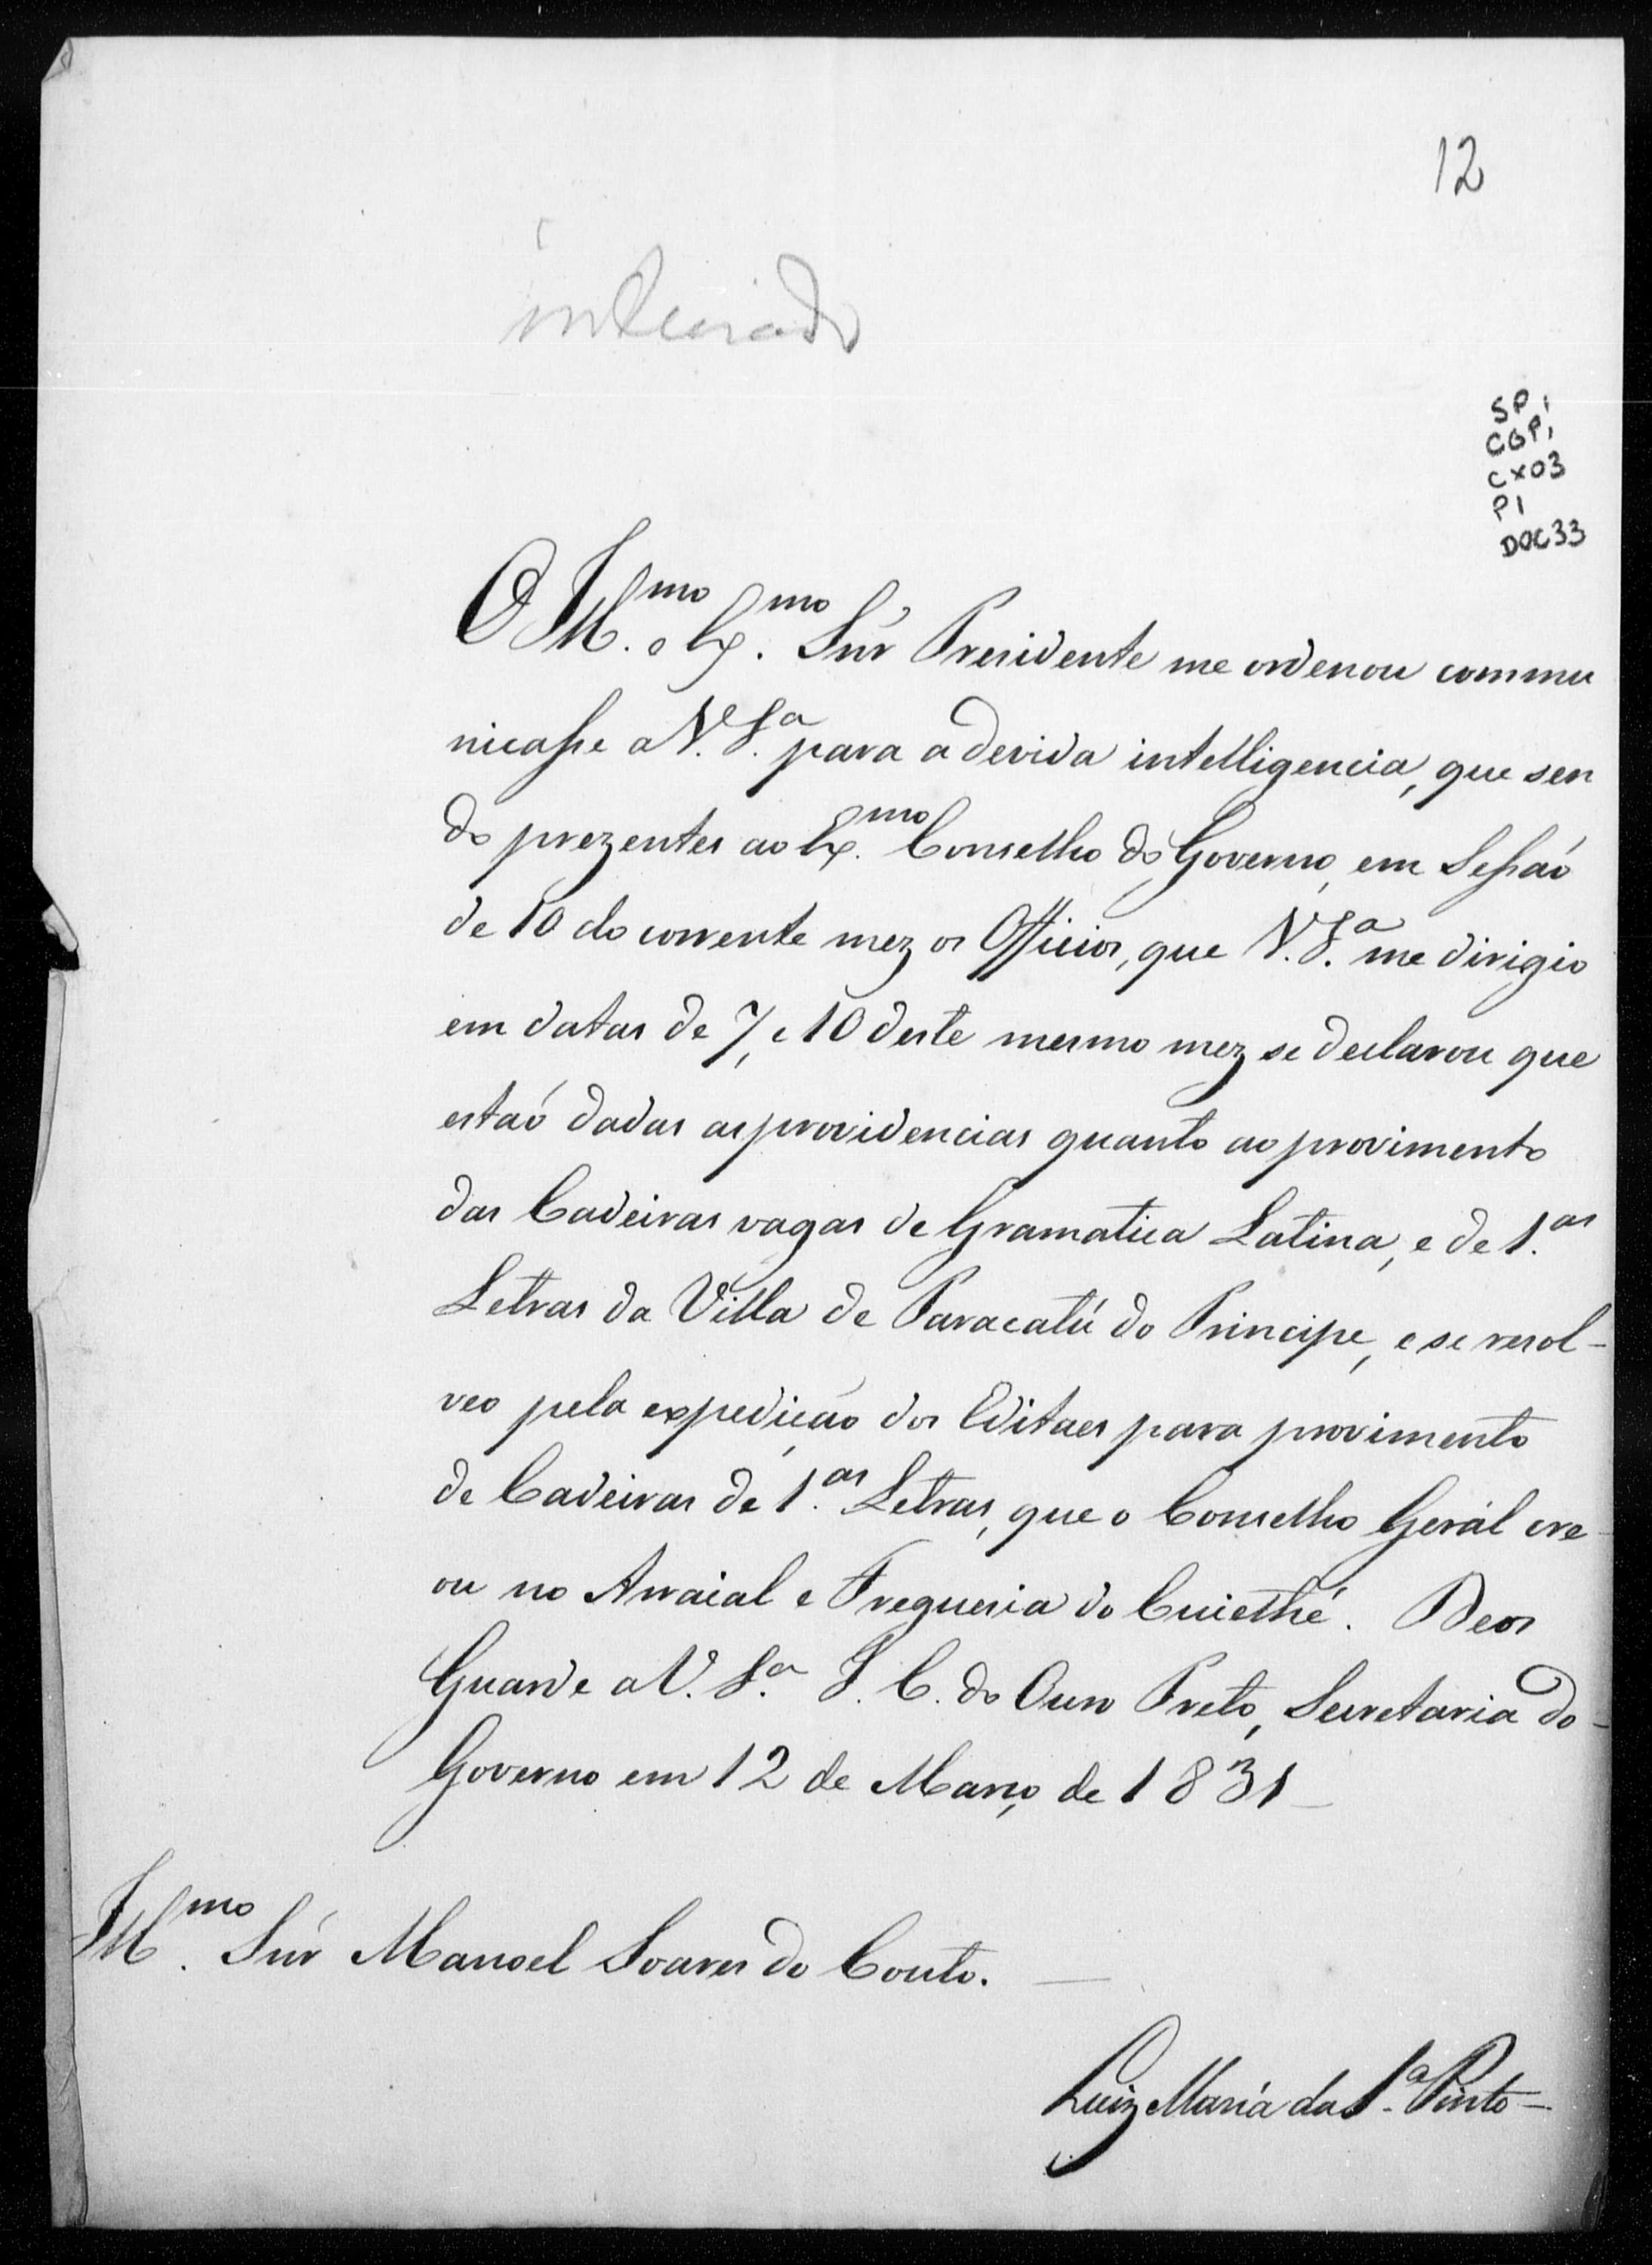 12
inteirado
SP1
CGP1
CX03
P1
DOC33
O Ill.mo e Ex.mo Snr̃ Presidente me ordenou commu
nicasse a V. S.a para a devida intelligencia, que sen
do prezentes ao Ex.mo Conselho do Governo, em Sessaõ
de 10 do corrente mez os Officios, que V. S.a me dirigio
em datas de 7, e 10 deste mesmo mez se declarou que
estaõ dadas as providencias quanto ao provimento
das Cadeiras vagas de Gramatica Latina, e de 1.as
Letras da Villa de Paracatú do Principe, e se resol-
veo pela expedição dos Editaes para provimento
de Cadeiras de 1.as Letras, que o Conselho Gerál cre-
ou no Arraial e Freguesia do Cuiethé. Deos
Guarde a V. S.a I. C. do Ouro Preto, Secretaria do-
Governo em 12 de Março de 1831-
Ill.mo Snr̃ Manoel Soares do Couto.
Luiz Maria da S.a Pinto-